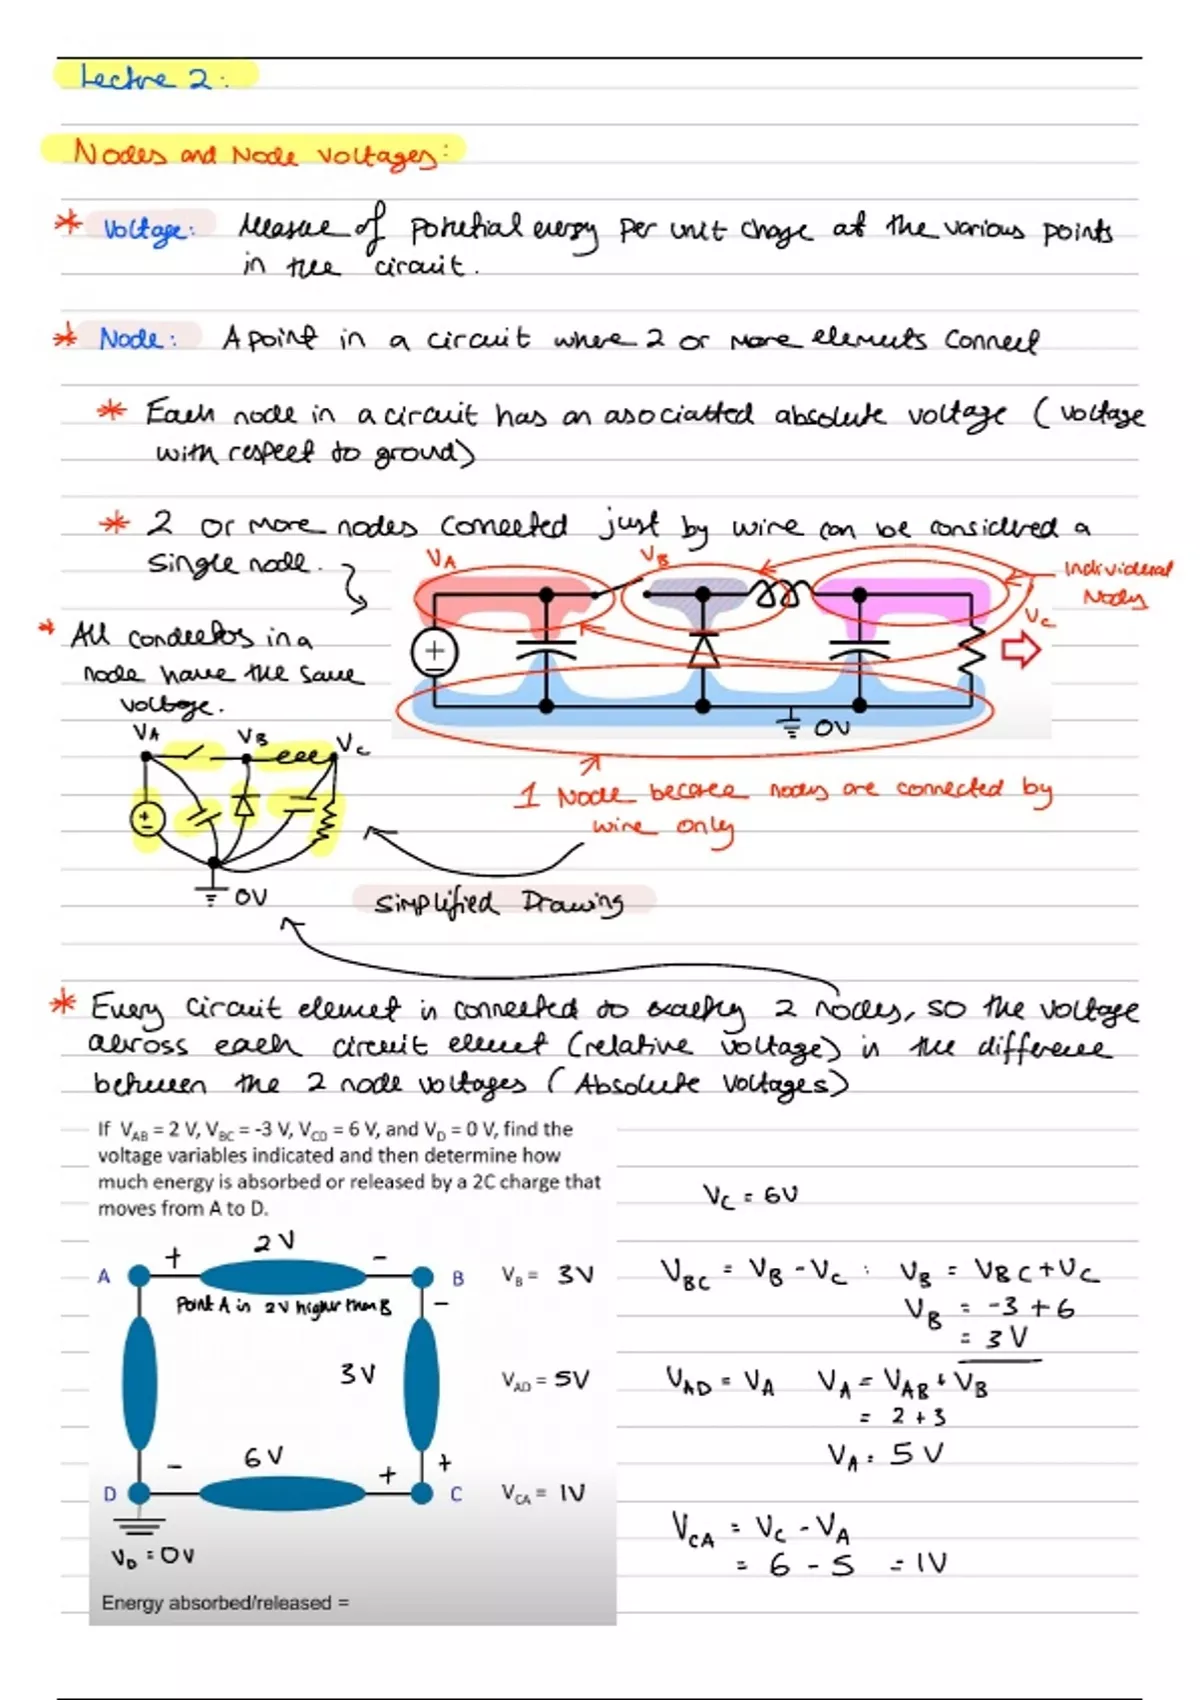 Lecture 2:
Nodes and Node Voltages:
* Voltage: Measure of potential energy per unit charge at the various points
in the circuit.
* Node: A point in a circuit where 2 or more elements connect
* Each node in a circuit has an asociatted absolute voltage (voltage
with respect to ground)
* 2 or more nodes connected just by wire can be considered a
single node.
VA VB
Individual
Nodes
VC
* All conductors in a
node have the same
voltage.
+
0V
VA VB VC
1 Node because nodes are connected by
wire only
+
-
0V
Simplified Drawing
* Every circuit element is connected to exactly 2 nodes, so the voltage
across each circuit element (relative voltage) is the difference
between the 2 node voltages (Absolute voltages)
If VAB = 2 V, VBC = -3 V, VCD = 6 V, and VD = 0 V, find the
voltage variables indicated and then determine how
much energy is absorbed or released by a 2C charge that
moves from A to D.
VC = 6V
+ 2V -
A B VB = 3V
Point A is 2V higher than B
-
VBC = VB - VC : VB = VBC + VC
VB = -3 + 6
= 3V
3V
VAD = 5V
VAD = VA VA = VAB + VB
= 2 + 3
VA = 5V
- 6V + +
D C VCA = 1V
VCA = VC - VA
= 6 - 5 = 1V
VD = 0V
Energy absorbed/released =